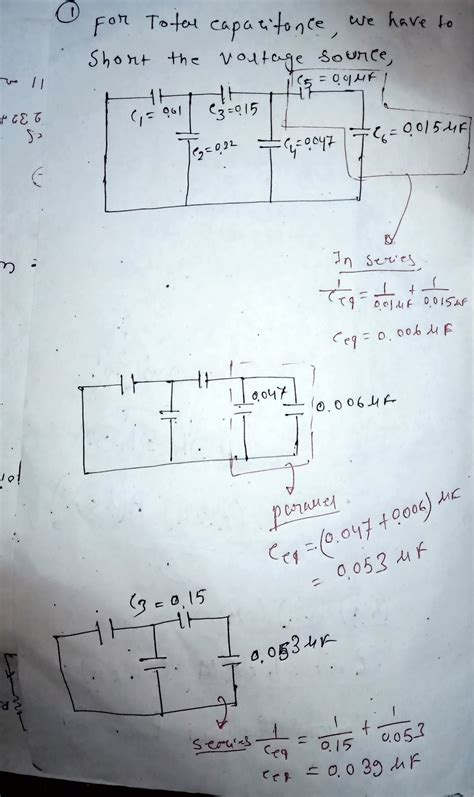 ① For Total capacitance, we have to
Short the voltage source,
C5 = 0.01μF
C1 = 0.01
C3 = 0.15
C2 = 0.22
C4 = 0.047
C6 = 0.015μF
In series
1/Ceq = 1/0.01μF + 1/0.015μF
Ceq = 0.006μF
0.047
0.006μF
parallel
Ceq = (0.047 + 0.006) μF
= 0.053 μF
C3 = 0.15
0.053μF
series 1/Ceq = 1/0.15 + 1/0.053
Ceq = 0.039 μF